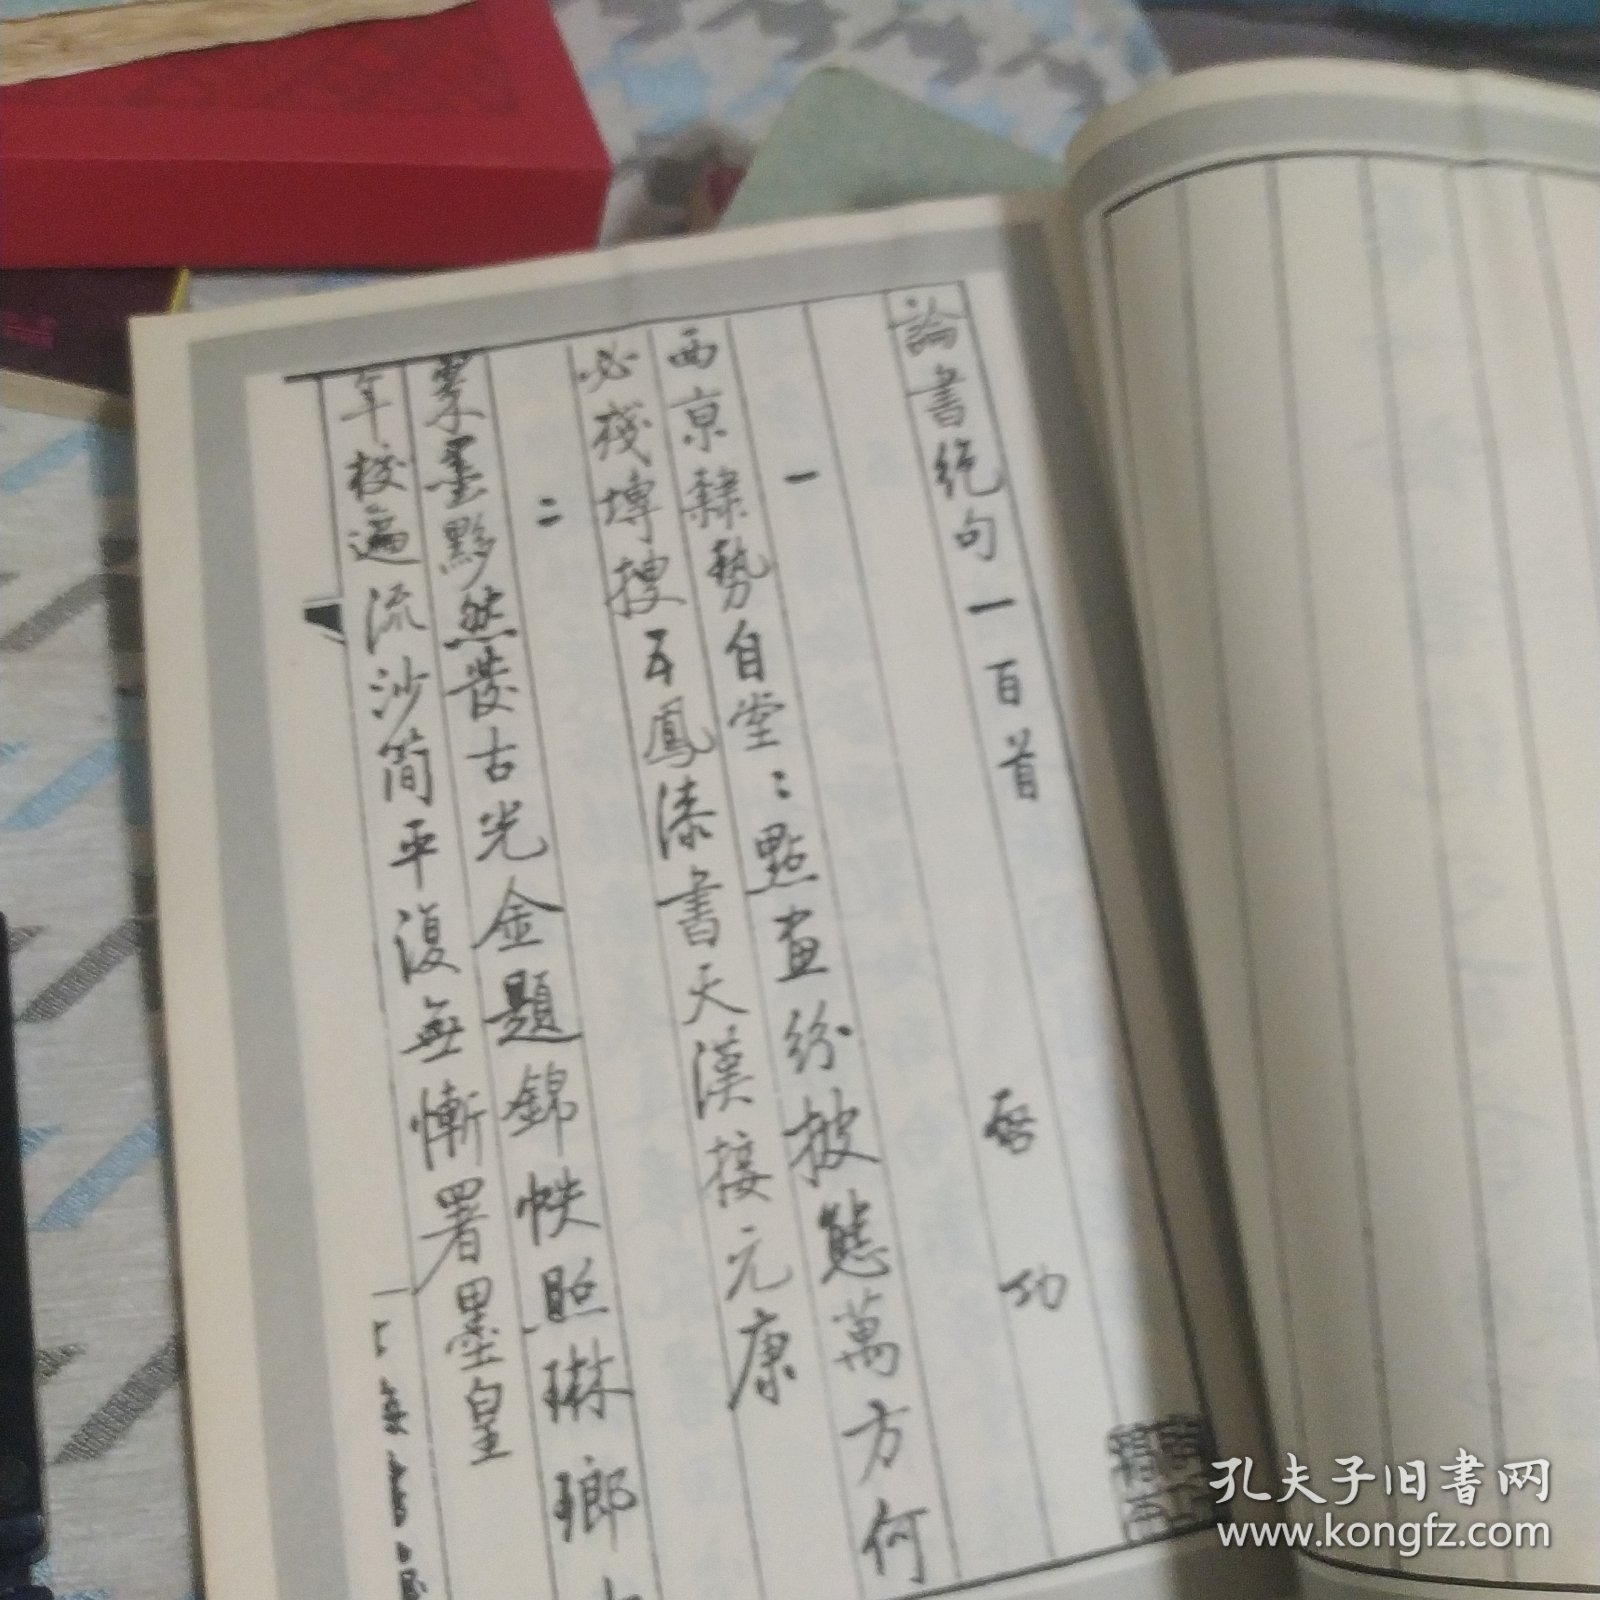 論書絶句一百首
啓功
一
西京隸勢自堂:點畫紛披態萬方何
必殘塼搜五鳳漆書天漢接元康
二
翠墨黟然發古光金題錦帙照琳瑯十
年校遍流沙簡平復無慚署墨皇
孔夫子旧书网
www.kongfz.com